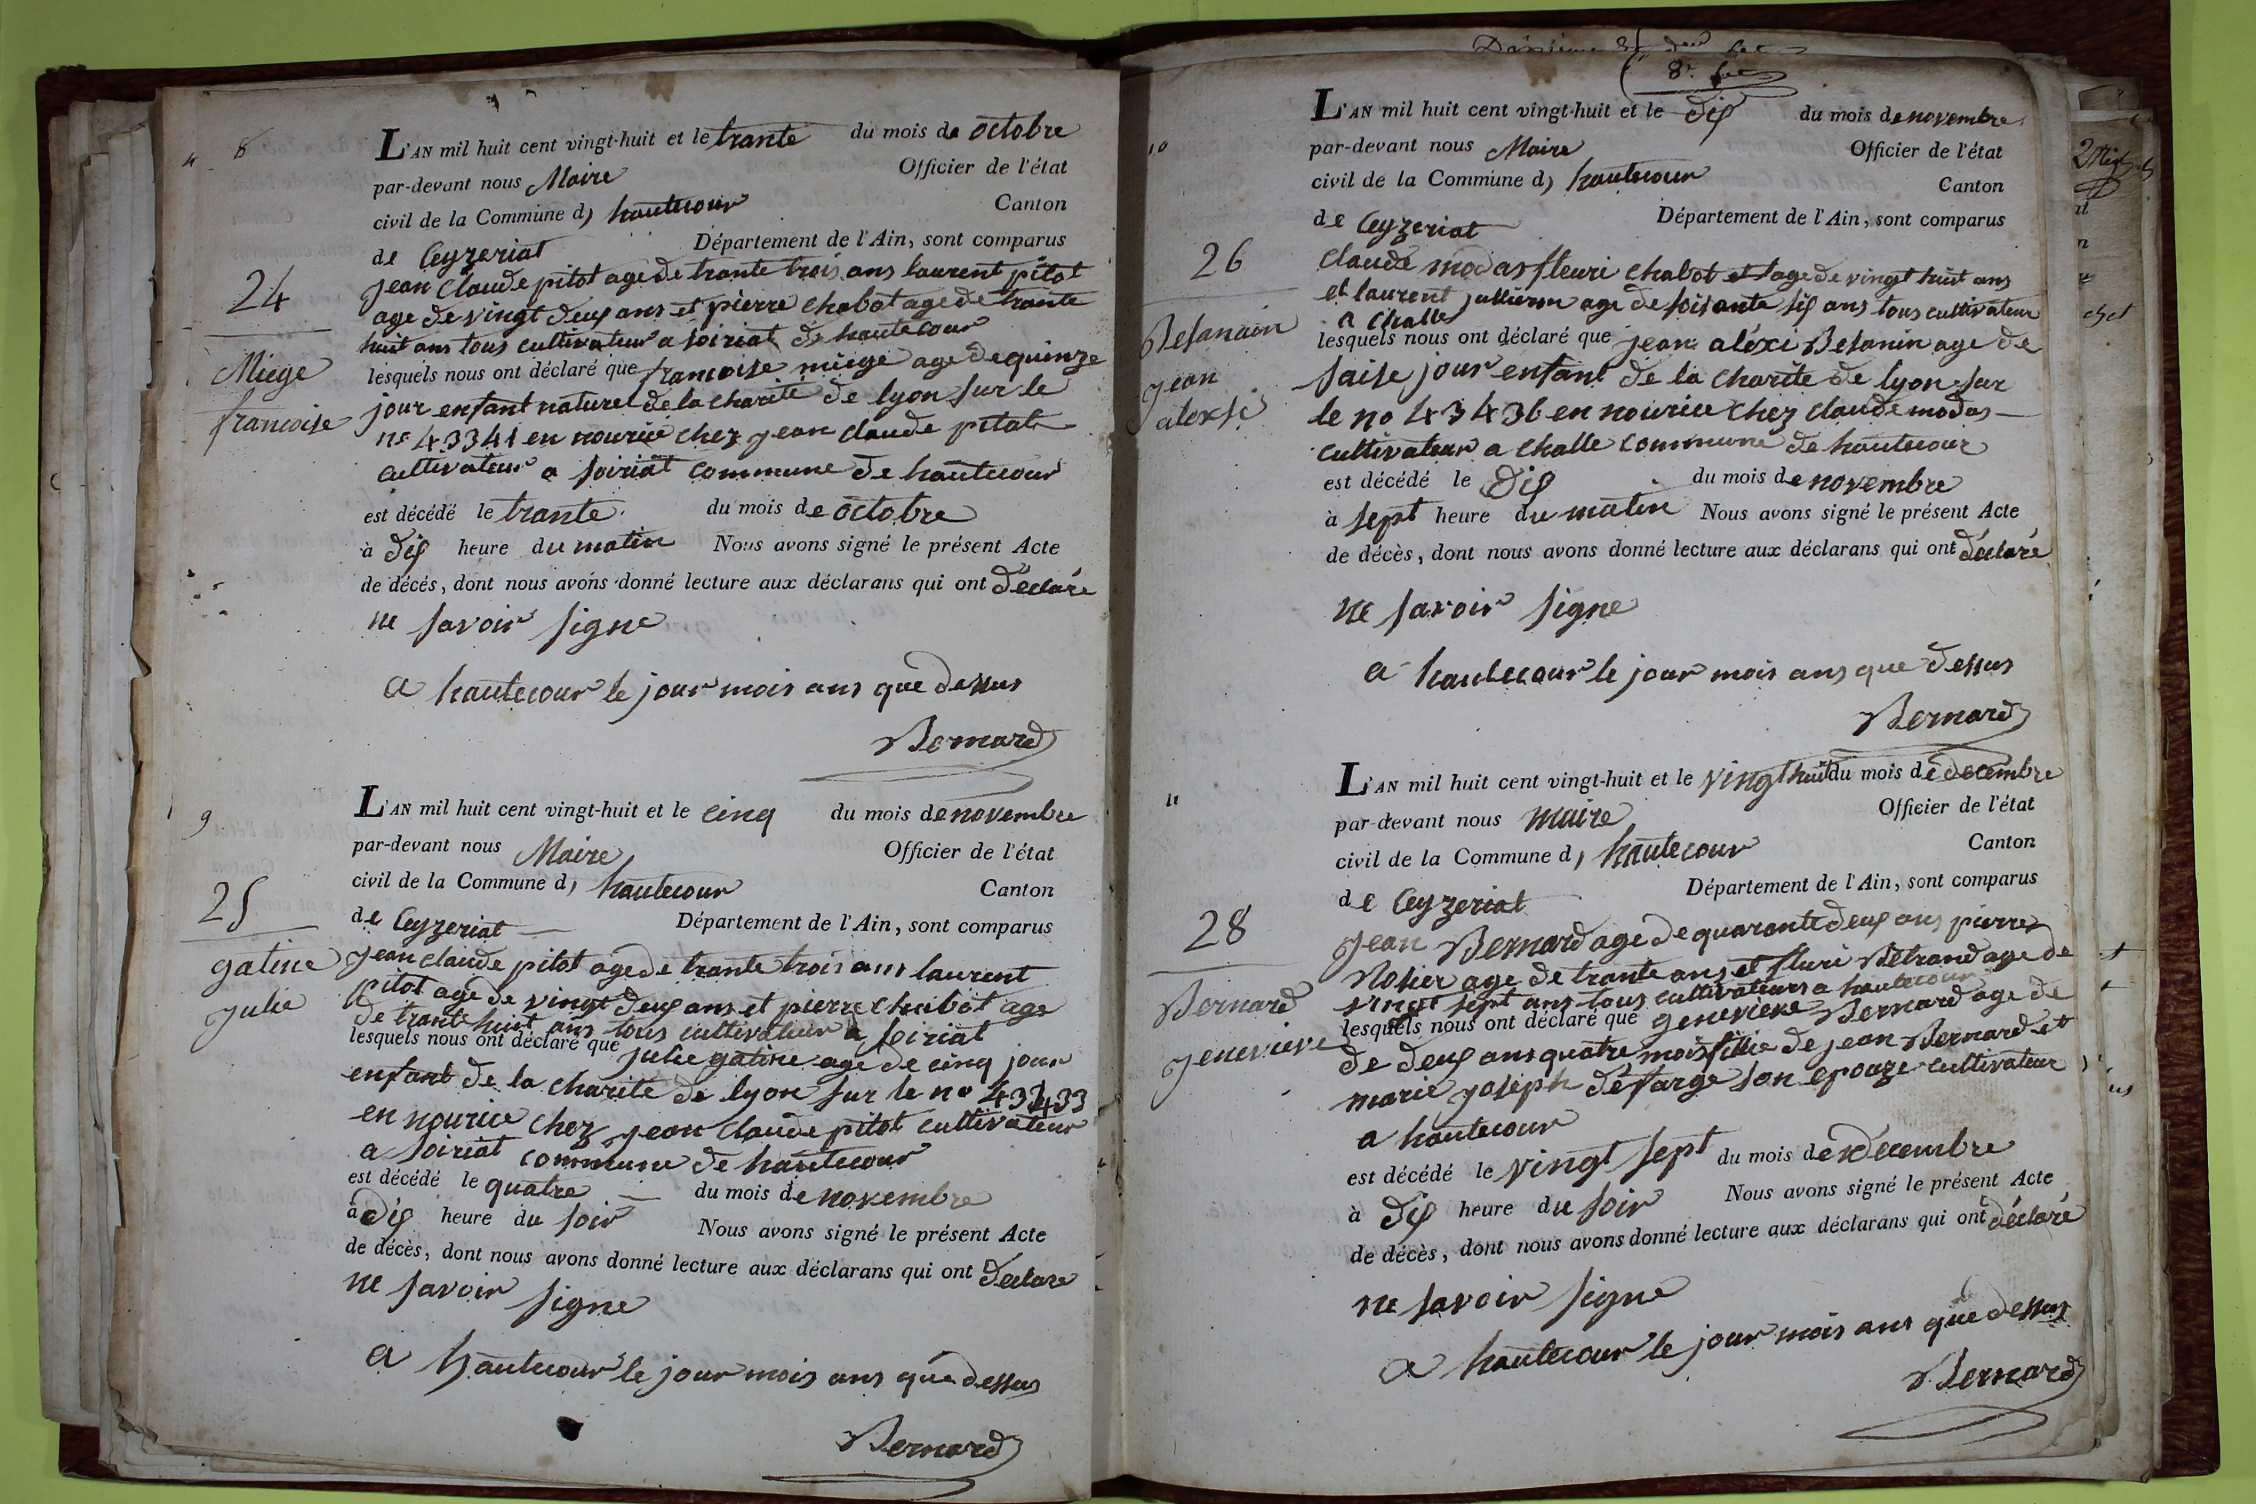 8
L'AN mil huit cent vingt-huit et le trante du mois de octobre
par-devant nous Maire Officier de l'état
civil de la Commune d, hautecour Canton
de Ceyzeriat Département de l'Ain, sont comparus
24
Jean Claude pitot age de trante trois ans laurent pitot
age de vingt deux ans et pierre chabot age de trante
huit ans tous cultivateur a soiriat de hautecour
Miège
françoise
lesquels nous ont déclaré que francoise miège age de quinze
jour enfant naturel de la charité de lyon sur le
no 43341 en nourice chez jean claude pitot
cultivateur a soiriat commune de hautecour
est décédé le trante du mois de octobre
à dix heure du matin Nous avons signé le présent Acte
de décés, dont nous avons donné lecture aux déclarans qui ont déclaré
ne savoir signe
a hautecour le jour mois ans que dessus
Bernard
9
L'AN mil huit cent vingt-huit et le cinq du mois de novembre
par-devant nous Maire Officier de l'état
civil de la Commune d, hautecour Canton
de Ceyzeriat Département de l'Ain, sont comparus
25
gatine
Julie
Jean claude pitot age de trante trois ans laurent
pitot age de vingt deux ans et pierre chabot age
de trante huit ans tous cultivateur a soiriat
lesquels nous ont déclaré que Julie gatine age de cinq jour
enfant de la charité de lyon sur le no
en nourice chez jean claude pitot cultivateur
a soiriat commune de hautecour
est décédé le quatre du mois de novembre
à dix heure du soir Nous avons signé le présent Acte
de décès, dont nous avons donné lecture aux déclarans qui ont déclaré
ne savoir signe
a hautecour le jour mois ans que dessus
Bernard
8e
10
L'AN mil huit cent vingt-huit et le dix du mois de novembre
par-devant nous Maire Officier de l'état
civil de la Commune d, hautecour Canton
de Ceyzeriat Département de l'Ain, sont comparus
26
claude modas fleuri chabot et age de vingt huit ans
et laurent jullieron age de soisante six ans tous cultivateur
a challe
Besanain
jean
alexsi
lesquels nous ont déclaré que jean aléxi Besanin age de
saise jour enfant de la charité de lyon sur
le no 43436 en nourice chez claude modas
cultivateur a challe commune de hautecour
est décédé le dix du mois de novembre
à sept heure du matin Nous avons signé le présent Acte
de décès, dont nous avons donné lecture aux déclarans qui ont déclaré
ne savoir signe
a hautecour le jour mois ans que dessus
Bernard
11
L'AN mil huit cent vingt-huit et le vingt huit du mois de decembre
par-devant nous maire Officier de l'état
civil de la Commune d, hautecour Canton
de Ceyzeriat Département de l'Ain, sont comparus
28
Bernard
Jenevieve
Jean Bernard age de quarante deux ans pierre
Nosier age de trante ans et fluri Betrand age de
vingt sept ans tous cultivateurs a hautecour
lesquels nous ont déclaré que genevieve Bernard age de
de deux ans quatre mois fillie de jean Bernard et
marie joseph défarge son epouze cultivateur
a hautecour
est décédé le vingt sept du mois de Décembre
à dix heure du soir Nous avons signé le présent Acte
de décès, dont nous avons donné lecture aux déclarans qui ont déclaré
ne savoir signe
a hautecour le jour mois ans que dessus
Bernard